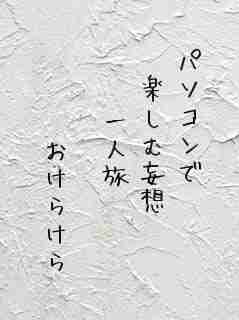 パソコンで
楽しむ妄想
一人旅
おけらけら